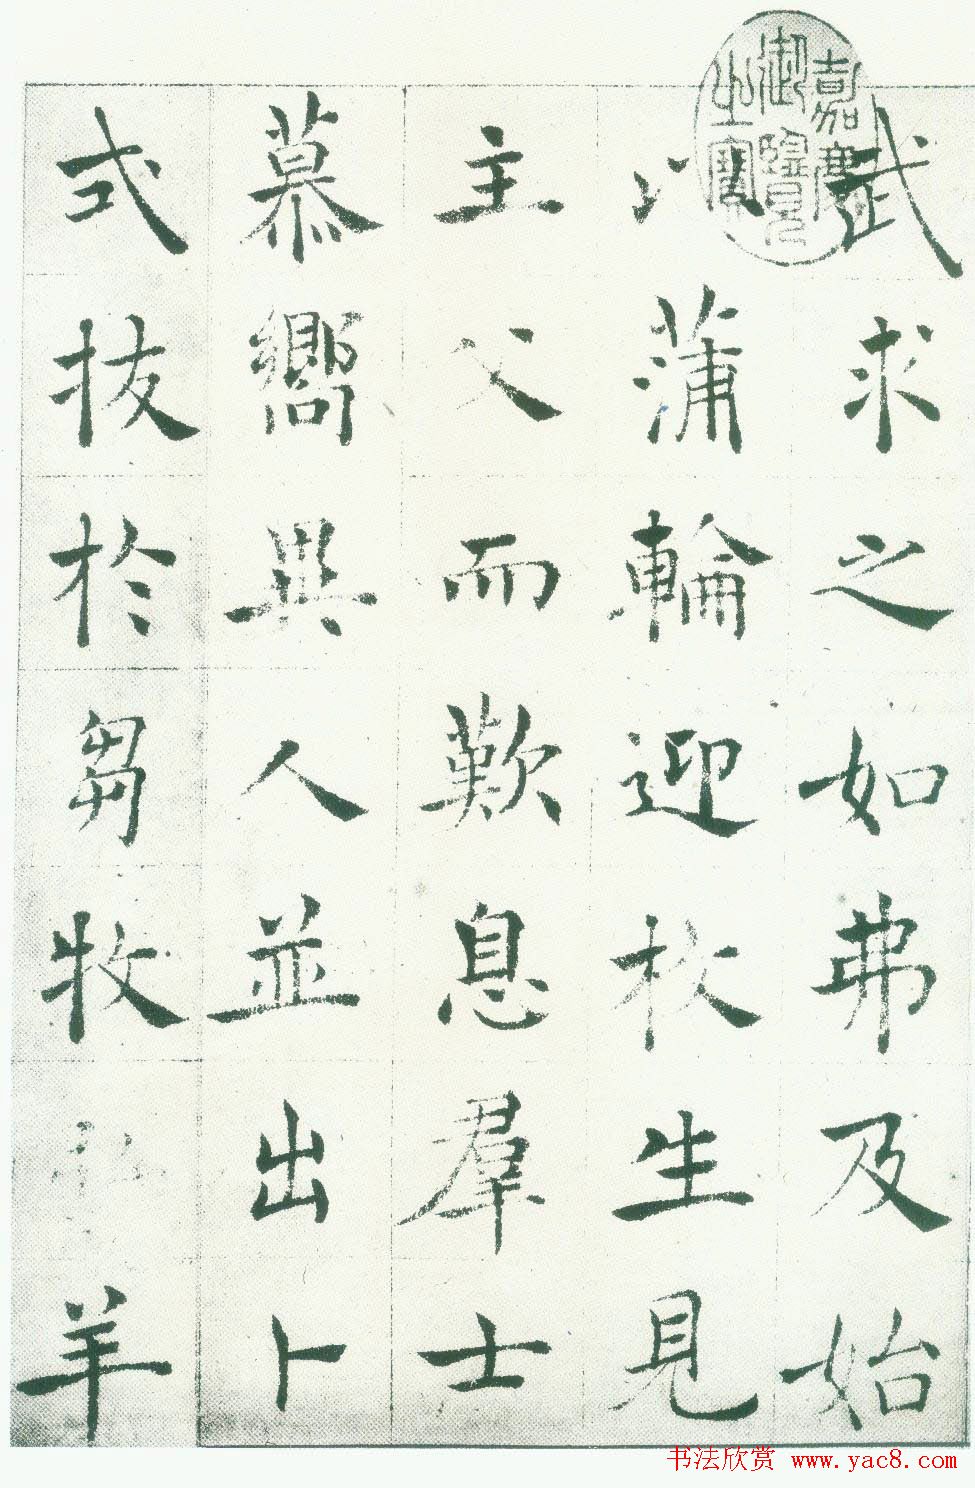 嘉慶
御覽
之寶
武求之如弗及始
以蒲輪迎枚生見
主父而歎息羣士
慕嚮異人並出卜
式拔於芻牧弘羊
书法欣赏 www.yac8.com